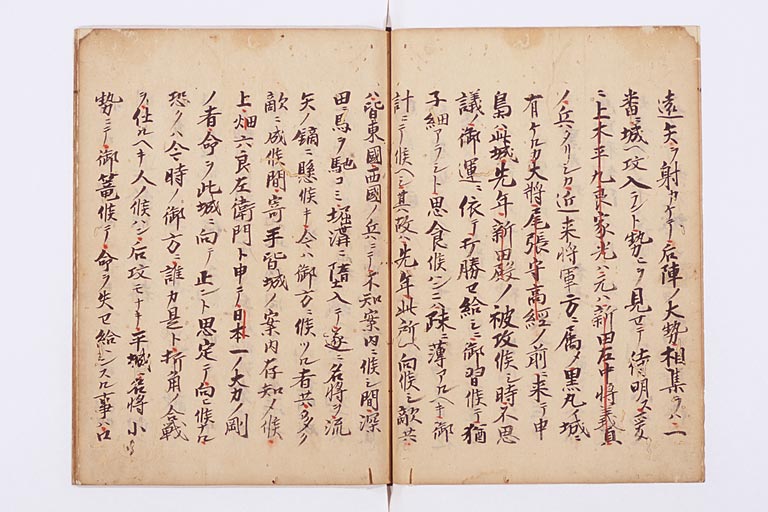 遠矢ヲ射カケテ后陣ノ大勢相集ラハ一
番ニ城ヘ攻入ラント勢ヒヲ見セテ待明ス爰
ニ上木平九郎家光ハ元ハ新田左中将義貞
ノ兵ニテアリシカ近来将軍方ニ属〆黒丸ノ城ニ
有ケルカ大将尾張守高経ノ前ニ来テ申
此城先年新田殿ノ被攻候シ時不思
議ノ御運ニ依テ打勝セ給シニ御習候テ猶
子細アラシト思食候ハンニハ疎薄アルヘキ御
計ニテ候ヘシ其故ハ先年此所ヘ向候シ敵共
ハ皆東國西國ノ兵ニテ不知案内ニ候シ間深
田ニ馬ヲ馳コミ堀溝ニ墮入テ遂ニ名将ヲ流
矢ノ鏑ニ懸候キ今ハ御方ニ候ツル者共多ク
敵ニ成候間寄手皆城ノ案内存知〆候
上畑六良左衛門ト申テ日本一ノ大力ノ剛
ノ者命ヲ此城ニ向テ止ント思定テ向候ナル
恐クハ今時ノ御方ニ誰カ是ト折角ノ合戦
ヲ仕ルヘキ人ノ候ハン后攻モナキ平城ニ名将ノ小
勢ニテ御篭候テ命ヲ失セ給ハンスル事ハ口